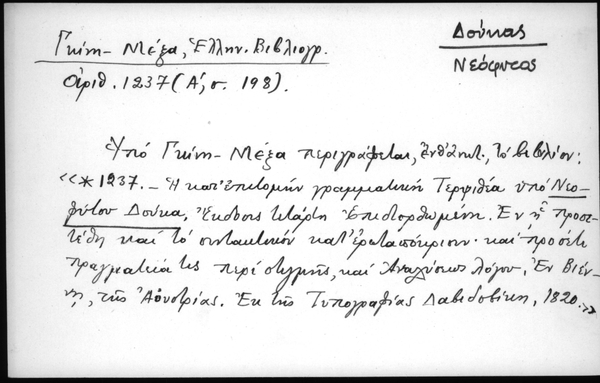 Γκίνη - Μέξα, Ἑλλην. Βιβλιογρ.
ἀριθ. 1237 (Α΄, σ. 198).
Δούκας
Νεόφυτος
Ὑπό Γκίνη - Μέξα περιγράφεται, ἐνθ' ἀνωτ., τό βιβλίον:
«*1237. – Ἡ κατ' ἐπιτομήν γραμματική Τερψιθέα ὑπό Νεο-
φύτου Δούκα, Ἔκδοσις τετάρτη ἐπιδιορθωμένη. Ἐν ᾗ προσε-
τέθη καί τό συντακτικόν κατ' ἐρωταπόκρισιν· καί προσέτι
πραγματεία τις περί στιγμῆς, καί Ἀναλύσεως λόγου. Ἐν Βιέν-
νῃ, τῆς Αὐστρίας. Ἐκ τῆς Τυπογραφίας Δαβιδοβίκη, 1820.»